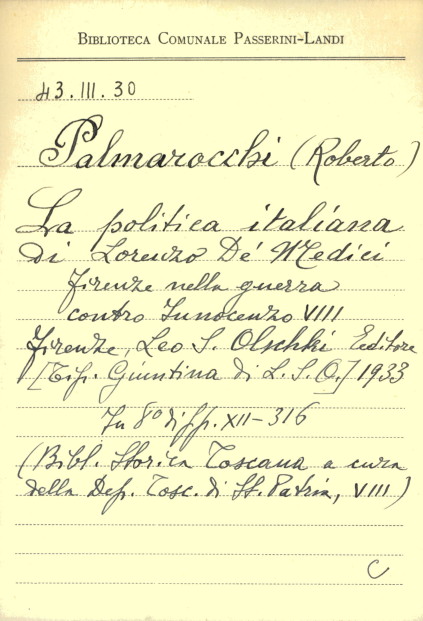 BIBLIOTECA COMUNALE PASSERINI-LANDI
43.III.30
Palmarocchi (Roberto)
La politica italiana
di Lorenzo De' Medici
Firenze nella guerra
contro Innocenzo VIII
Firenze, Leo S. Olschki Editore
[Tip. Giuntina di L. S. O.] 1933
In 8° di pp. XII-316
(Bibl. Storica Toscana a cura
della Dep. Tosc. di St. Patria, VIII)
C